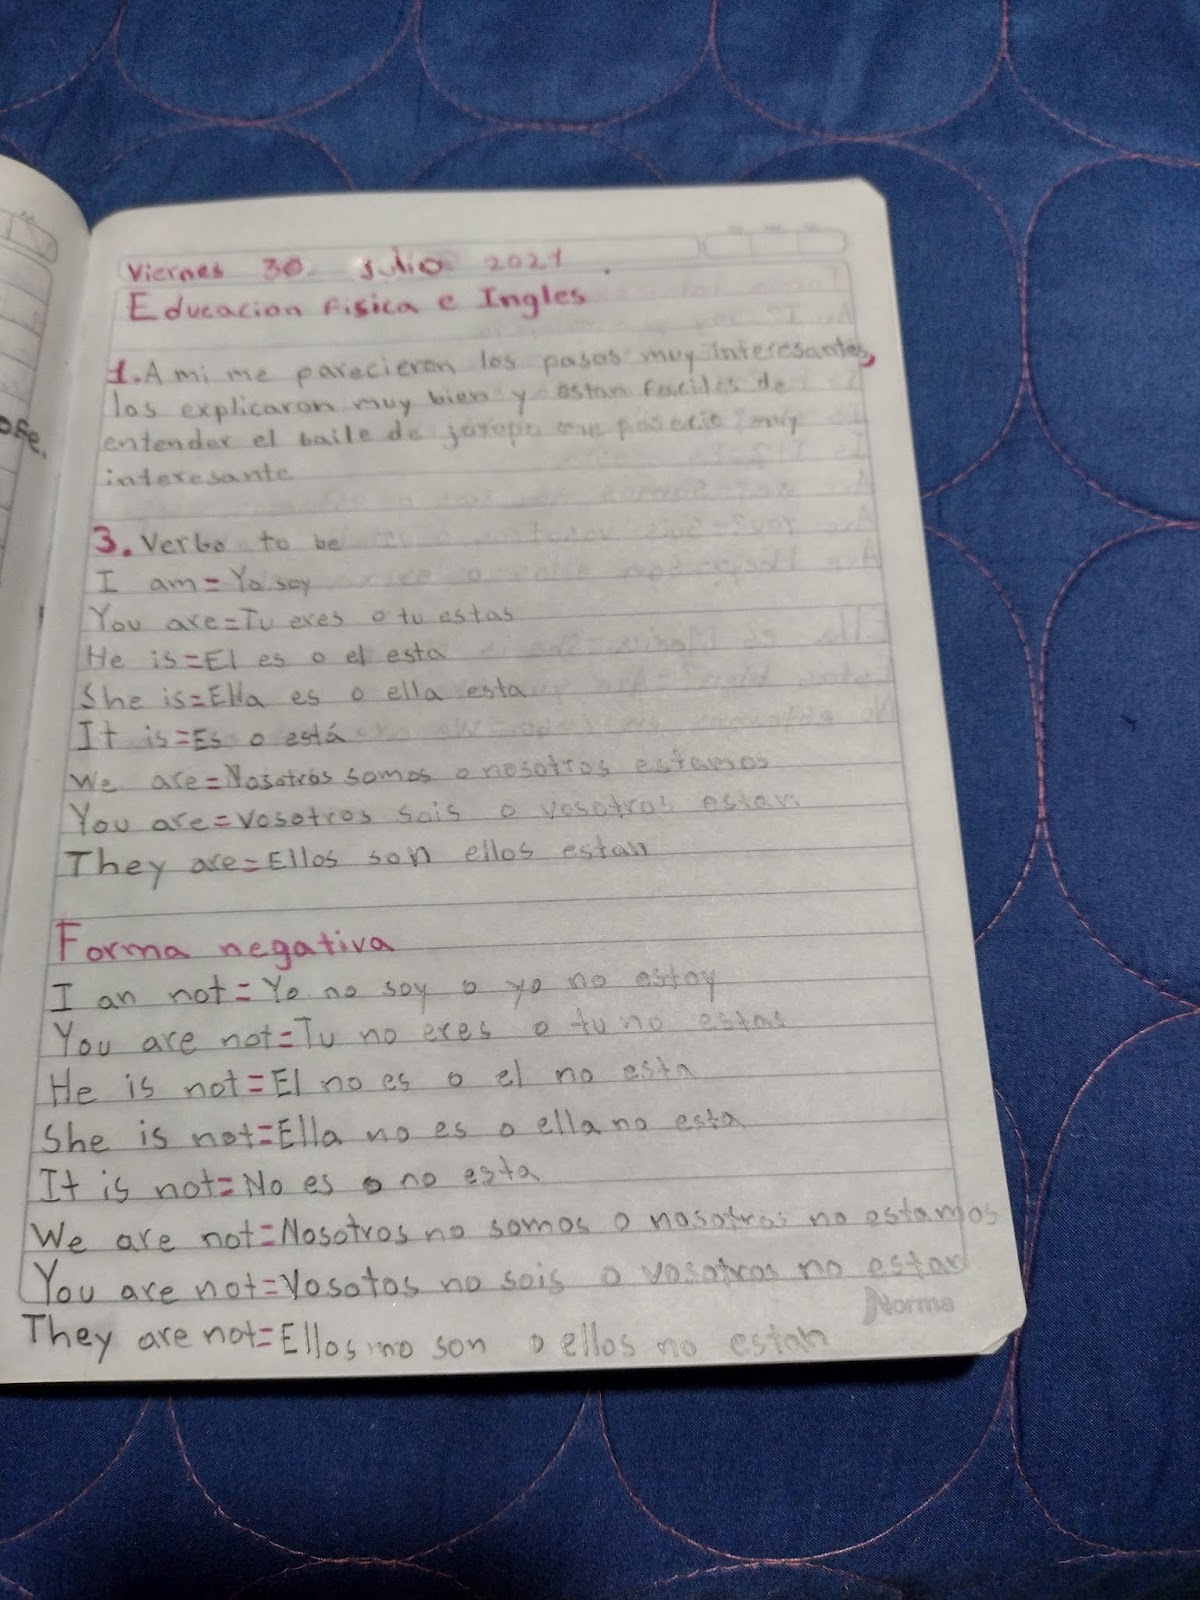 Viernes 30 julio 2021
Educacion Fisica e Ingles
1. A mi me parecieron los pasos muy interesantes,
los explicaron muy bien y estan faciles de
entender el baile de joropo me parecio muy
interesante
3. Verbo to be
I am = Yo soy
You are = Tu eres o tu estas
He is = El es o el esta
She is = Ella es o ella esta
It is = Es o está
We are = Nosotros somos o nosotros estamos
You are = vosotros sois o vosotros estan
They are = Ellos son ellos estan
Forma negativa
I an not = Yo no soy o yo no estoy
You are not = Tu no eres o tu no estas
He is not = El no es o el no esta
She is not = Ella no es o ella no esta
It is not = No es o no esta
We are not = Nosotros no somos o nosotros no estamos
You are not = Vosotos no sois o vosotros no estan
They are not = Ellos no son o ellos no estan
Norma